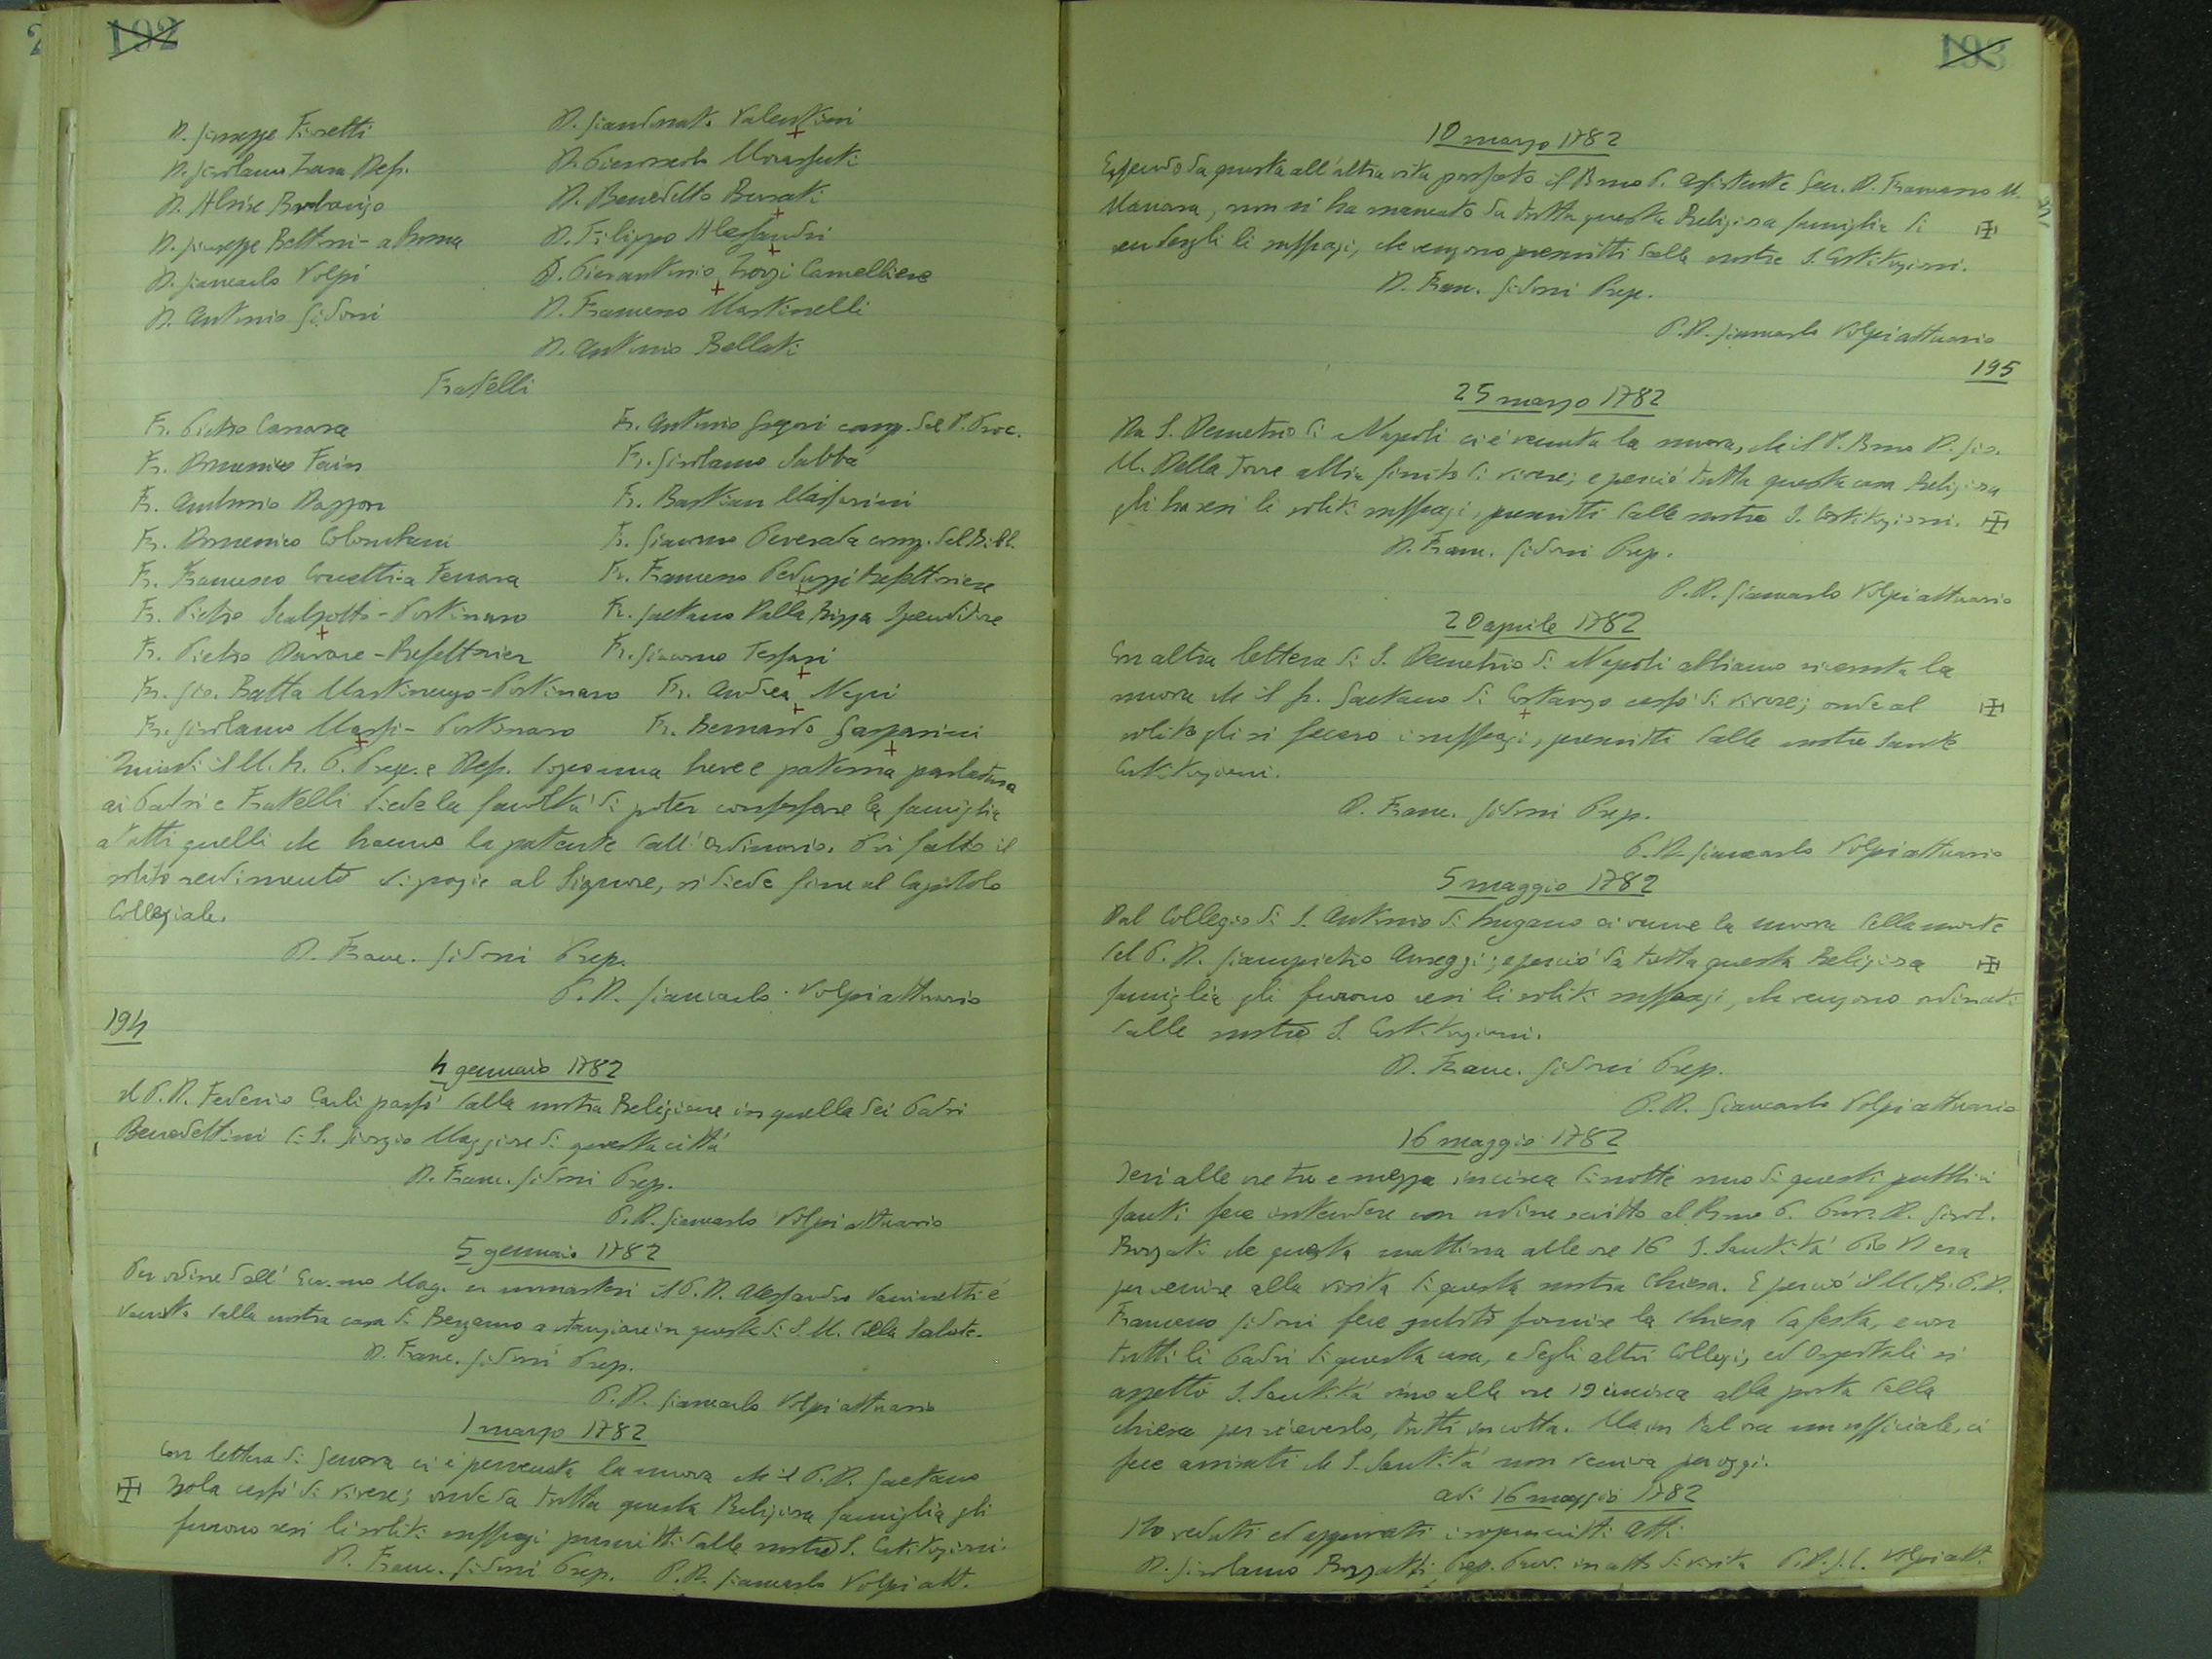 192
D. Giuseppe Fioretti
D. Girolamo Zara Dep.
D. Alvise Barbarigo
D. Giuseppe Bettoni - a Roma
D. Giancarlo Volpi
D. Antonio Gidoni
D. Giandonat. Valentini
D. Benedetto Bursati
D. Filippo Alessandri
D. Pierantonio Zorzi Camelliere
D. Francesco Martinelli
D. Antonio Bellati
Fratelli
Fr. Pietro Carrara
Fr. Domenico Fain
Fr. Antonio Dazzon
Fr. Domenico Colombani
Fr. Francesco Cornetti-a Ferrara
Fr. Pietro Scalzotto - Portinaro
Fr. Pietro Davare - Refettorier
Fr. Gio. Batta Martinengo - Portinaro
Fr. Girolamo Massi - Portinaro
Fr. Antonio Gregori comp. del P. Proc.
Fr. Girolamo Sabbà
Fr. Bastian Massarini
Fr. Giacomo Peverada comp. del Bibl.
Fr. Francesco Peduzzi Refettoriere
Fr. Gaetano Dalla Rizza Spenditore
Fr. Giacomo Tessari
Fr. Andrea Negri
Fr. Bernardo Gasparini
Quindi il M. R. P. Prep. e Dep. dopo una breve e paterna parlatura
ai Padri e Fratelli diede la facoltà di poter confessare la famiglia
a tutti quelli che hanno la patente dall'Ordinario. Poi fatto il
solito rendimento di grazie al Signore, si diede fine al Capitolo
Collegiale.
D. Franc. Gidoni Prep.
P. D. Giancarlo Volpi attuario
194
4 gennaio 1782
Il P. D. Federico Carli passò dalla nostra Religione in quella dei Padri
Benedettini di S. Giorgio Maggiore di questa città
D. Franc. Gidoni Prep.
P. D. Giancarlo Volpi attuario
5 gennaio 1782
Per ordine dell' Ecc.mo Mag. ai monasteri il P. D. Alessandro Vaninetti è
venuto dalla nostra casa di Bergamo a stanziare in questa di S. M. della Salute.
D. Franc. Gidoni Prep.
P. D. Giancarlo Volpi attuario
1 marzo 1782
Con lettera di Genova ci è pervenuta la nuova che il P. D. Gaetano
Zola cessò di vivere; onde da tutta questa Religiosa famiglia gli
furono resi li soliti suffragi prescritti dalle nostre S. Costituzioni.
D. Franc. Gidoni Prep. P. D. Giancarlo Volpi att.
193
10 marzo 1782
Essendo da questa all'altra vita passato il Rmo P. Assistente Gen. D. Francesco M.
Manara, non si ha mancato da tutta questa Religiosa famiglia di
rendergli li suffragi, che vengono prescritti dalle nostre S. Costituzioni.
D. Franc. Gidoni Prep.
P. D. Giancarlo Volpi attuario
195
25 marzo 1782
Da S. Demetrio di Napoli ci è venuta la nuova, che il P. Rmo D. Gio.
M. Della Torre abbia finito di vivere; e perciò tutta questa casa Religiosa
gli ha resi li soliti suffragi, prescritti dalle nostre S. Costituzioni.
D. Franc. Gidoni Prep.
P. D. Giancarlo Volpi attuario
20 aprile 1782
Con altra lettera di S. Demetrio di Napoli abbiamo ricevuta la
nuova che il fr. Gaetano di Costanzo cessò di vivere; onde al
solito gli si fecero i suffragi, prescritti dalle nostre Sante
Costituzioni.
D. Franc. Gidoni Prep.
P. D. Giancarlo Volpi attuario
5 maggio 1782
Dal Collegio di S. Antonio di Lugano ci venne la nuova della morte
del P. D. Giampietro; e perciò da tutta questa Religiosa
famiglia gli furono resi li soliti suffragi, che vengono ordinati
dalle nostre S. Costituzioni.
D. Franc. Gidoni Prep.
P. D. Giancarlo Volpi attuario
16 maggio 1782
Ieri alle ore tre e mezza incirca di notte uno di questi pubblici
fanti fece intendere con ordine scritto al Rmo P. Prov. D. Girol.
Bozzati che questa mattina alle ore 16 S. Santità Pio VI era
per venire alla visita di questa nostra Chiesa. E perciò il M. R. P. D.
Francesco Gidoni fece subito fornire la chiesa da festa, e con
tutti li Padri di questa casa, e degli altri Collegi, ed Ospitali si
aspettò S. Santità sino alle ore 19 incirca alla porta della
chiesa per riceverlo, tutti in cotta. Ma in tal ora un ufficiale, ci
fece avvisati che S. Santità non veniva per oggi.
adi 16 maggio 1782
Ho veduti ed approvati i soprascritti Atti
D. Girolamo Bozzatti Prep. Prov. in atto di visita P. D. G. C. Volpi att.